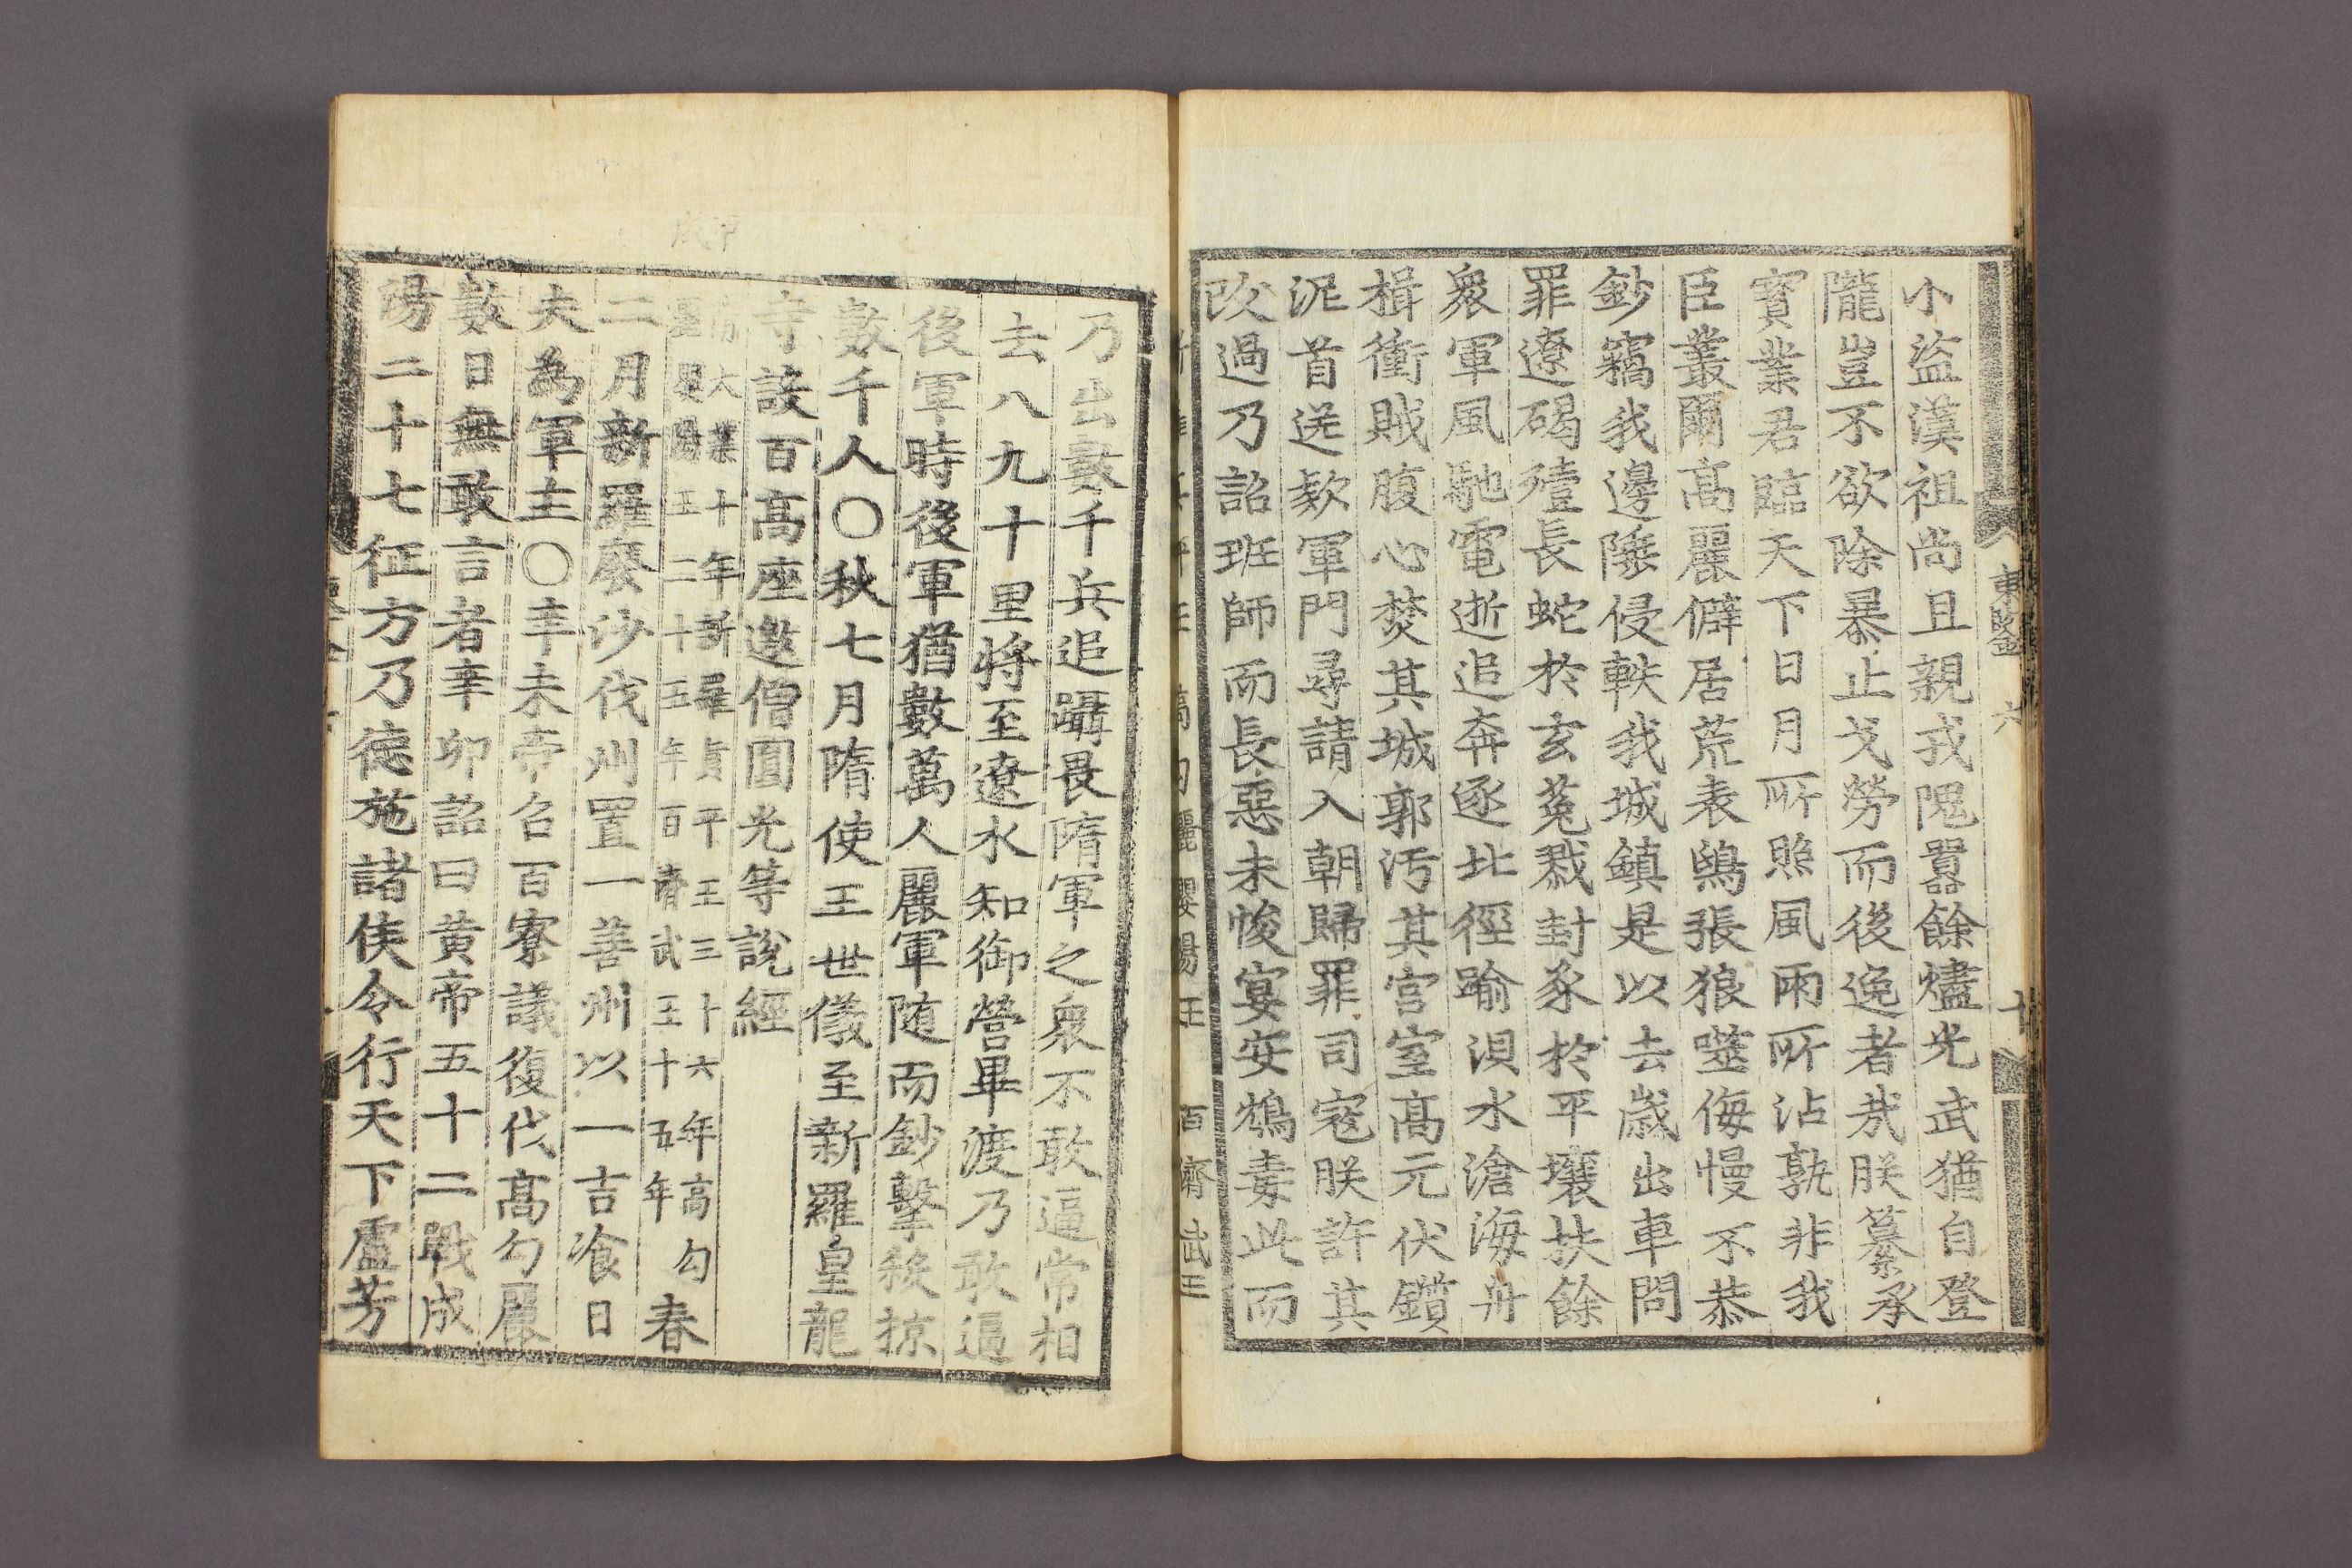 東鑑 六 十
小盜漢祖尚且親戎隗囂餘燼光武猶自登
隴豈不欲除暴止戈勞而後逸者㢤朕纂承
寶業君臨天下日月所照風雨所沾孰非我
臣叢爾高麗僻居荒表鴟張狼噬侮慢不恭
鈔竊我邊陲侵軼我城鎮是以去歲出車問
罪遼碣殪長蛇於玄菟戮封豕於平壤扶餘
衆軍風馳電逝追奔逐北徑踰浿水滄海舟
楫衝賊腹心焚其城郭汚其宮室高元伏鑕
泥首送款軍門尋請入朝歸罪司寇朕許其
改過乃詔班師而長惡未悛宴安鴆毒此而
高句麗嬰陽王 百濟武王
乃出數千兵追躡畏隋軍之衆不敢逼常相
去八九十里將至遼水知御營畢渡乃敢逼
後軍時後軍猶數萬人麗軍随而鈔擊殺掠
數千人〇秋七月隋使王世儀至新羅皇龍
寺設百高座邀僧圓光等說經
甲戌
隋大業十年新羅眞平王三十六年高勾
麗嬰陽王二十五年百濟武王十五年
春
二月新羅廢沙伐州置一善州以一吉飡日
夫為軍主〇辛未帝召百寮議復伐高勾麗
數日無敢言者辛卯詔曰黃帝五十二戰成
湯二十七征方乃德施諸侯令行天下盧芳